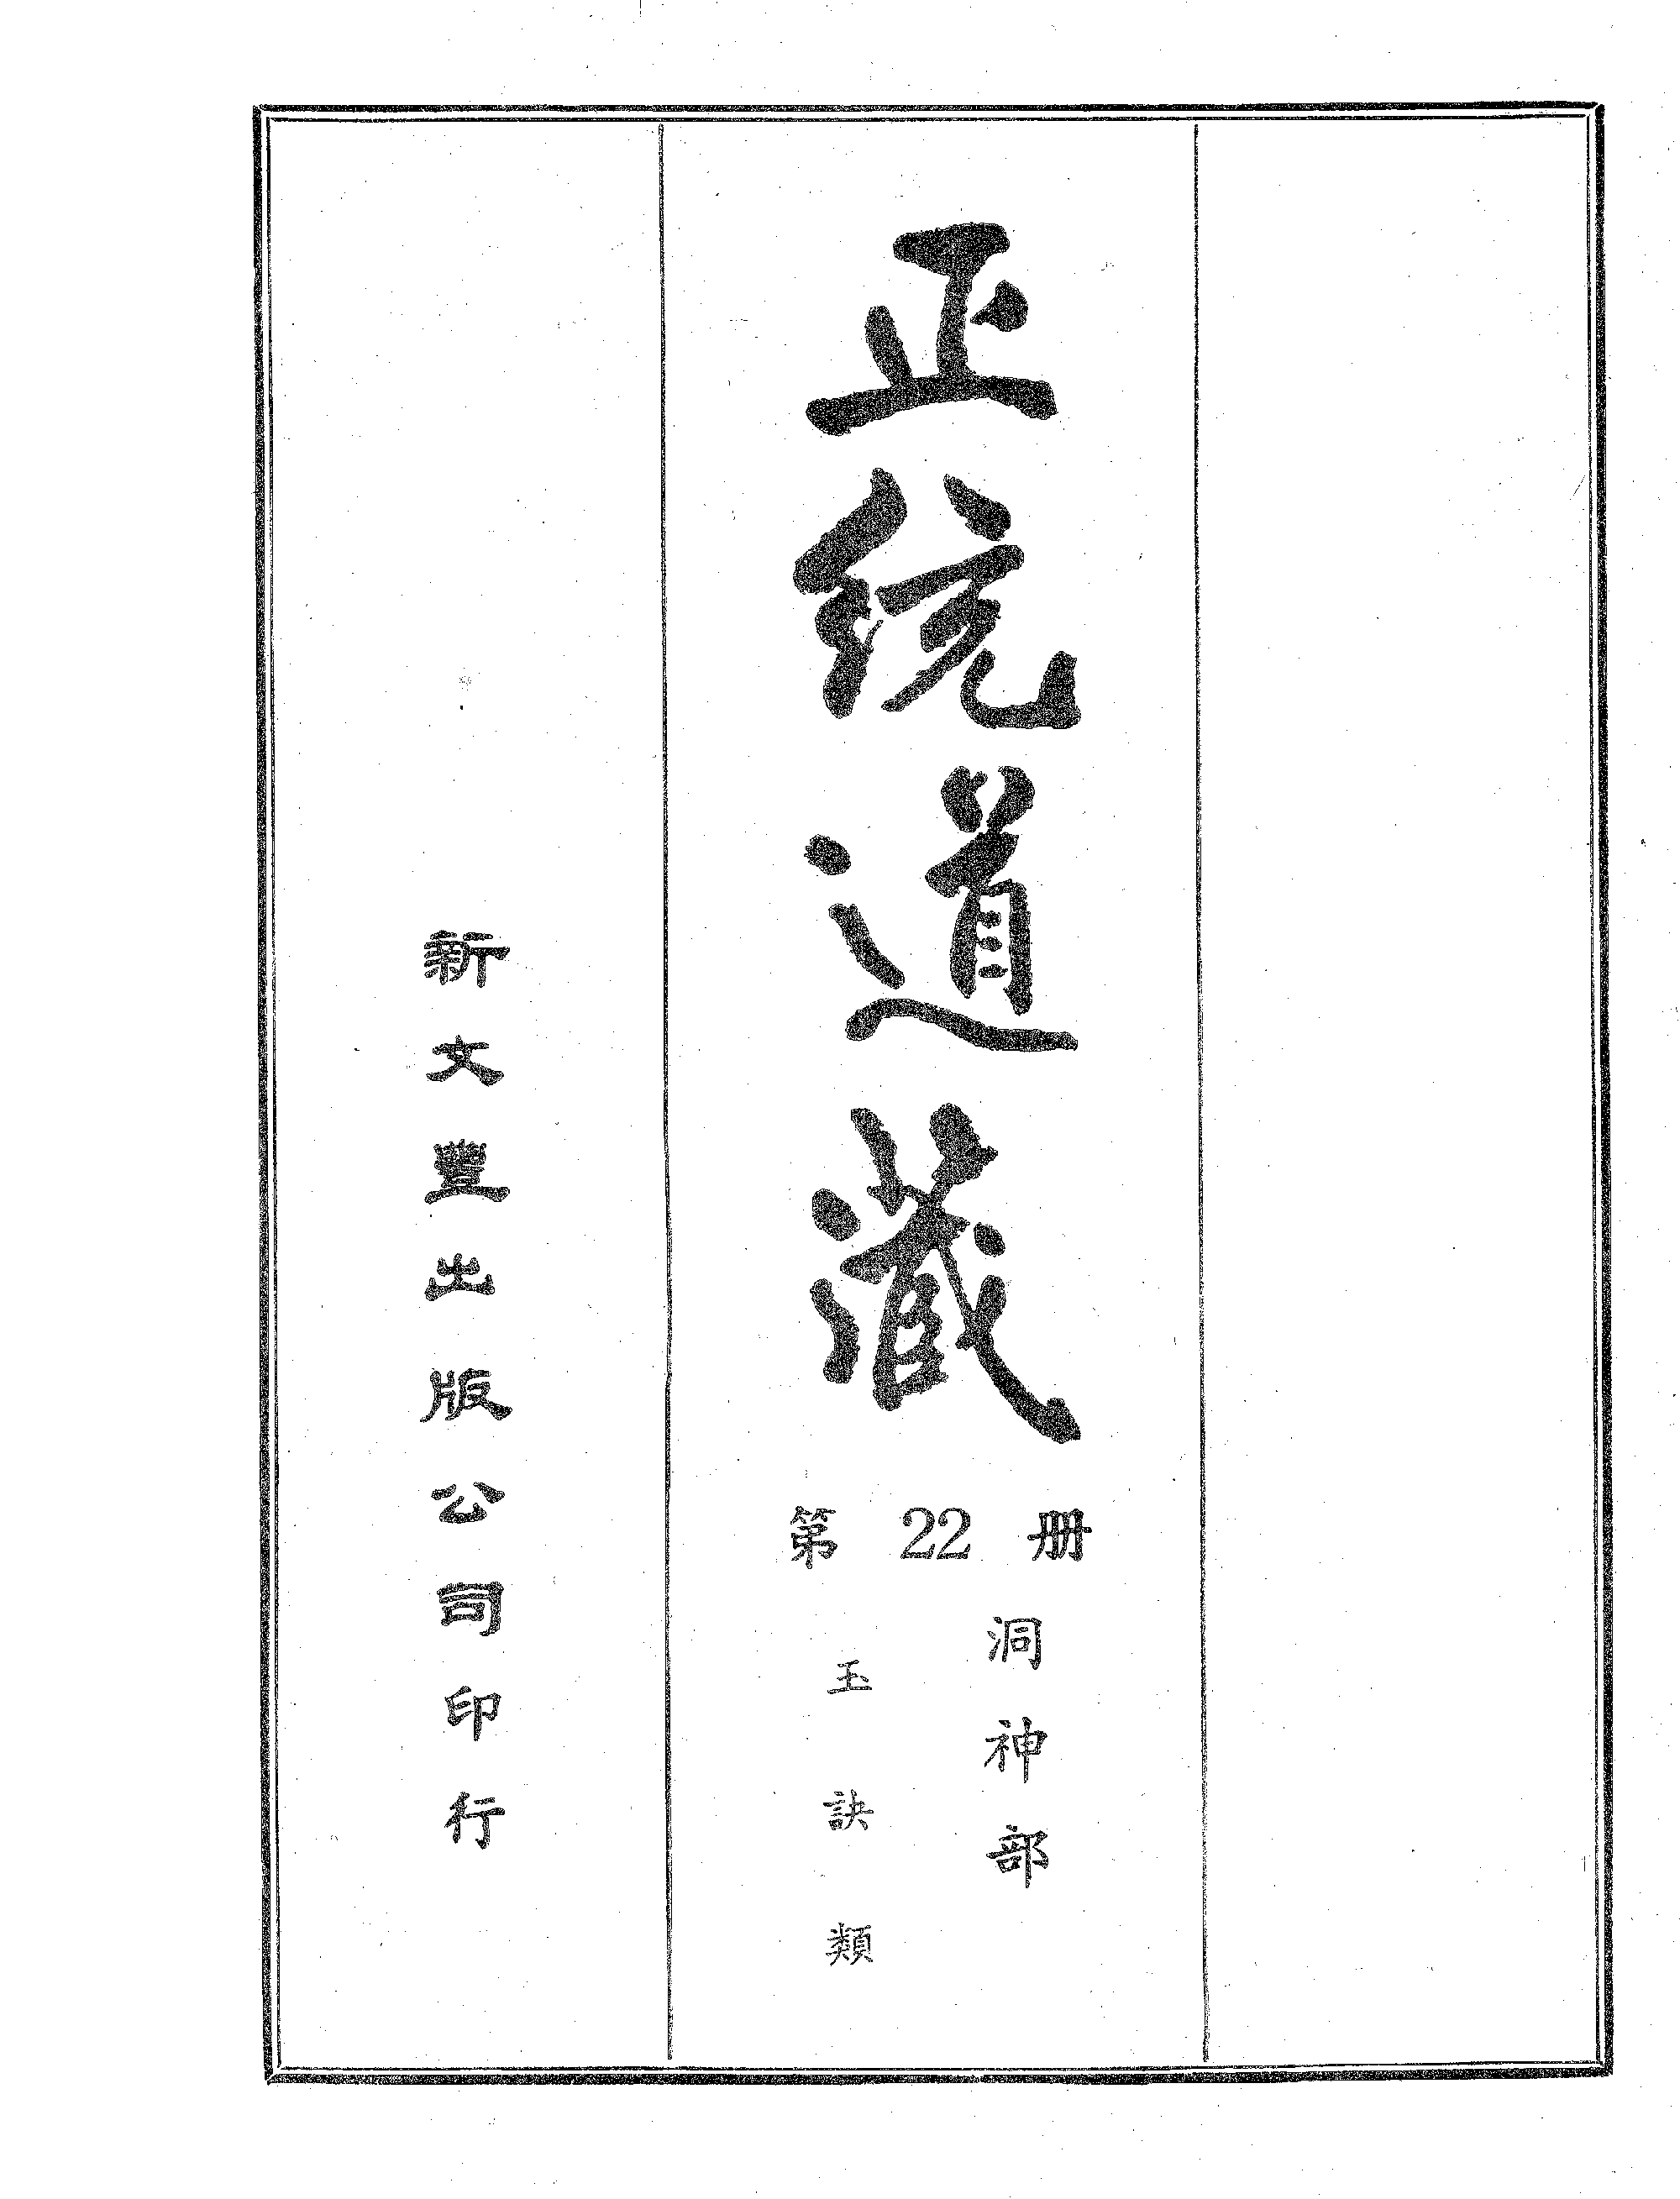 正統道藏
第22册
洞神部
玉訣類
新文豐出版公司印行